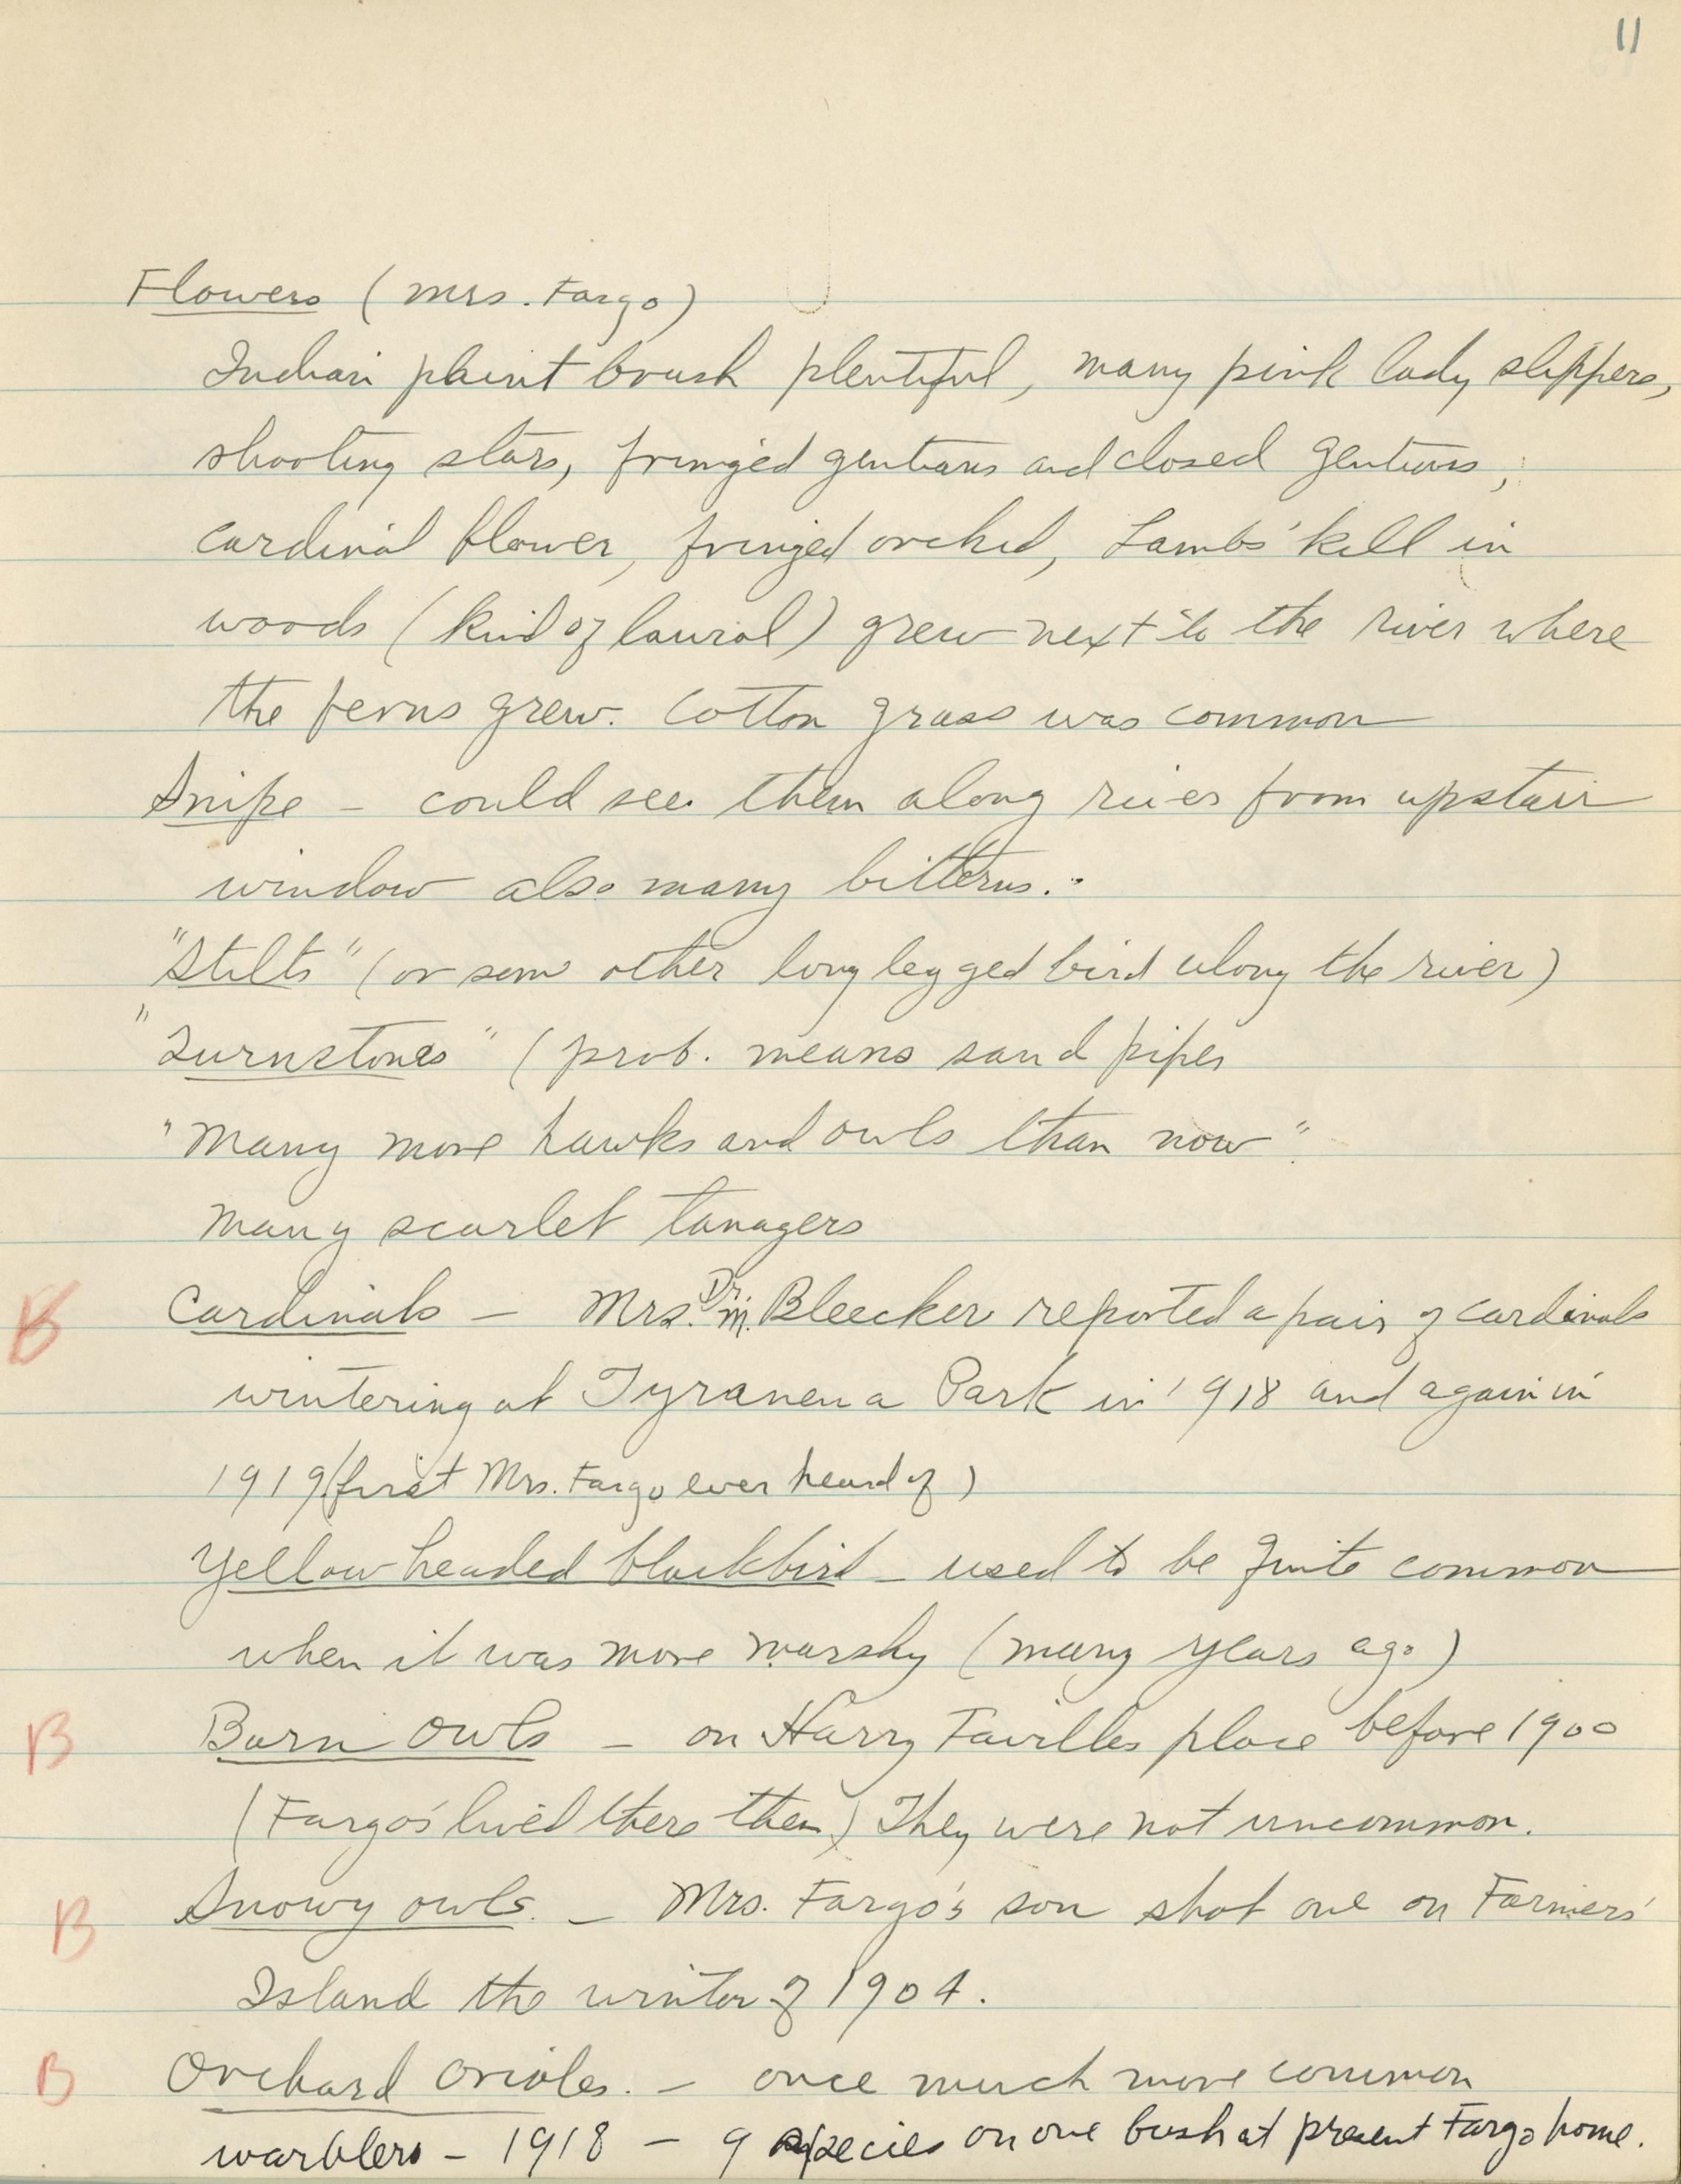 11
Flowers (Mrs. Fargo)
Indian paint brush plentiful, many pink lady slippers,
shooting stars, fringed gentians and closed gentians,
cardinal flower, fringed orchid, Lambs' kill in
woods (kind of laurol) grew next to the river where
the ferns grew. Cotton grass was common
Snipe - could see them along river from upstair
window also many bitterns.
"Stilts" (or some other long legged bird along the river)
"Turnstones" (prob. means sand piper
"Many more hawks and owls than now".
Many scarlet tanagers
B Cardinals - Mrs. Dr. M. Bleecker reported a pair of cardinals
wintering at Tyranena Park in 1918 and again in
1919 (first Mrs. Fargo ever heard of)
Yellow headed blackbird - used to be quite common
when it was more marshy (many years ago)
B Barn owls - on Harry Favilles place before 1900
(Fargo's lived there then) They were not uncommon.
B Snowy owls. - Mrs. Fargo's son shot one on Farmers'
Island the winter of 1904.
B Orchard orioles. - once much more common
warblers - 1918 - 9 species on one bush at present Fargo home.